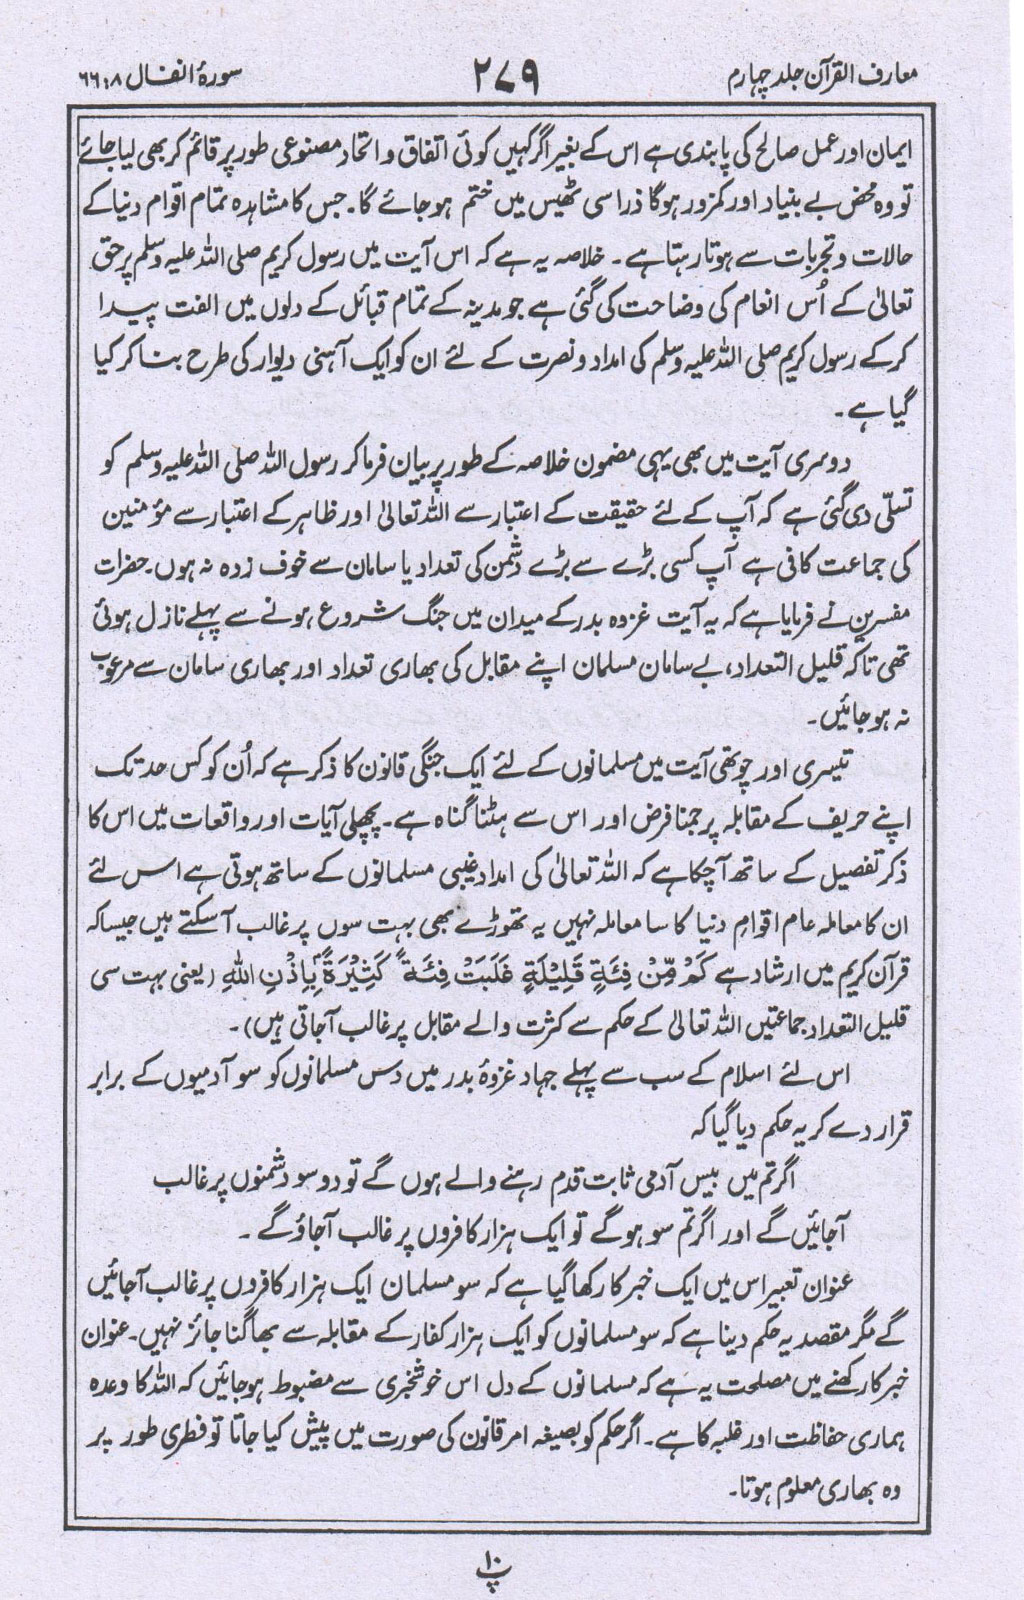 معارف القرآن جلد چہارم ۲۷۹ سورۂ انفال ۸ : ۶۶
ایمان اور عمل صالح کی پابندی ہے اس کے بغیر اگر کہیں کوئی اتفاق و اتحاد مصنوعی طور پر قائم کر بھی لیا جائے
تو وہ محض بے بنیاد اور کمزور ہوگا ذرا سی ٹھیس میں ختم ہو جائے گا۔ جس کا مشاہدہ تمام اقوام دنیا کے
حالات و تجربات سے ہوتا رہتا ہے ۔ خلاصہ یہ ہے کہ اس آیت میں رسول کریم صلی اللہ علیہ وسلم پر حق
تعالیٰ کے اُس انعام کی وضاحت کی گئی ہے جو مدینہ کے تمام قبائل کے دلوں میں الفت پیدا
کر کے رسول کریم صلی اللہ علیہ وسلم کی امداد و نصرت کے لئے ان کو ایک آہنی دیوار کی طرح بنا کر کیا
گیا ہے ۔
دوسری آیت میں بھی یہی مضمون خلاصہ کے طور پر بیان فرما کر رسول اللہ صلی اللہ علیہ وسلم کو
تسلّی دی گئی ہے کہ آپ کے لئے حقیقت کے اعتبار سے اللہ تعالیٰ اور ظاہر کے اعتبار سے مؤمنین
کی جماعت کافی ہے آپ کسی بڑے سے بڑے دشمن کی تعداد یا سامان سے خوف زدہ نہ ہوں۔ حضرات
مفسرین نے فرمایا ہے کہ یہ آیت غزوہ بدر کے میدان میں جنگ شروع ہونے سے پہلے نازل ہوئی
تھی تاکہ قلیل التعداد، بے سامان مسلمان اپنے مقابل کی بھاری تعداد اور بھاری سامان سے مرعوب
نہ ہو جائیں۔
تیسری اور چوتھی آیت میں مسلمانوں کے لئے ایک جنگی قانون کا ذکر ہے کہ اُن کو کس حد تک
اپنے حریف کے مقابلہ پر جمنا فرض اور اس سے ہٹنا گناہ ہے۔ پچھلی آیات اور واقعات میں اس کا
ذکر تفصیل کے ساتھ آچکا ہے کہ اللہ تعالیٰ کی امداد غیبی مسلمانوں کے ساتھ ہوتی ہے اس لئے
ان کا معاملہ عام اقوامِ دنیا کا سا معاملہ نہیں یہ تھوڑے بھی بہت سوں پر غالب آسکتے ہیں جیسا کہ
قرآن کریم میں ارشاد ہے كَمْ مِّنْ فِئَةٍ قَلِيْلَةٍ غَلَبَتْ فِئَةً كَثِيْرَةً بِاِذْنِ اللّٰهِ (یعنی بہت سی
قلیل التعداد جماعتیں اللہ تعالیٰ کے حکم سے کثرت والے مقابل پر غالب آجاتی ہیں)۔
اس لئے اسلام کے سب سے پہلے جہاد غزوۂ بدر میں دس مسلمانوں کو سو آدمیوں کے برابر
قرار دے کر یہ حکم دیا گیا کہ
اگر تم میں بیس آدمی ثابت قدم رہنے والے ہوں گے تو دو سو دشمنوں پر غالب
آجائیں گے اور اگر تم سو ہوگے تو ایک ہزار کافروں پر غالب آجاؤ گے ۔
عنوان تعبیر اس میں ایک خبر کا رکھا گیا ہے کہ سو مسلمان ایک ہزار کافروں پر غالب آجائیں
گے مگر مقصد یہ حکم دینا ہے کہ سو مسلمانوں کو ایک ہزار کفار کے مقابلہ سے بھاگنا جائز نہیں۔ عنوان
خبر کا رکھنے میں مصلحت یہ ہے کہ مسلمانوں کے دل اس خوشخبری سے مضبوط ہو جائیں کہ اللہ کا وعدہ
ہماری حفاظت اور غلبہ کا ہے۔ اگر حکم کو بصیغہ امر قانون کی صورت میں پیش کیا جاتا تو فطری طور پر
وہ بھاری معلوم ہوتا۔
پ ۱۰